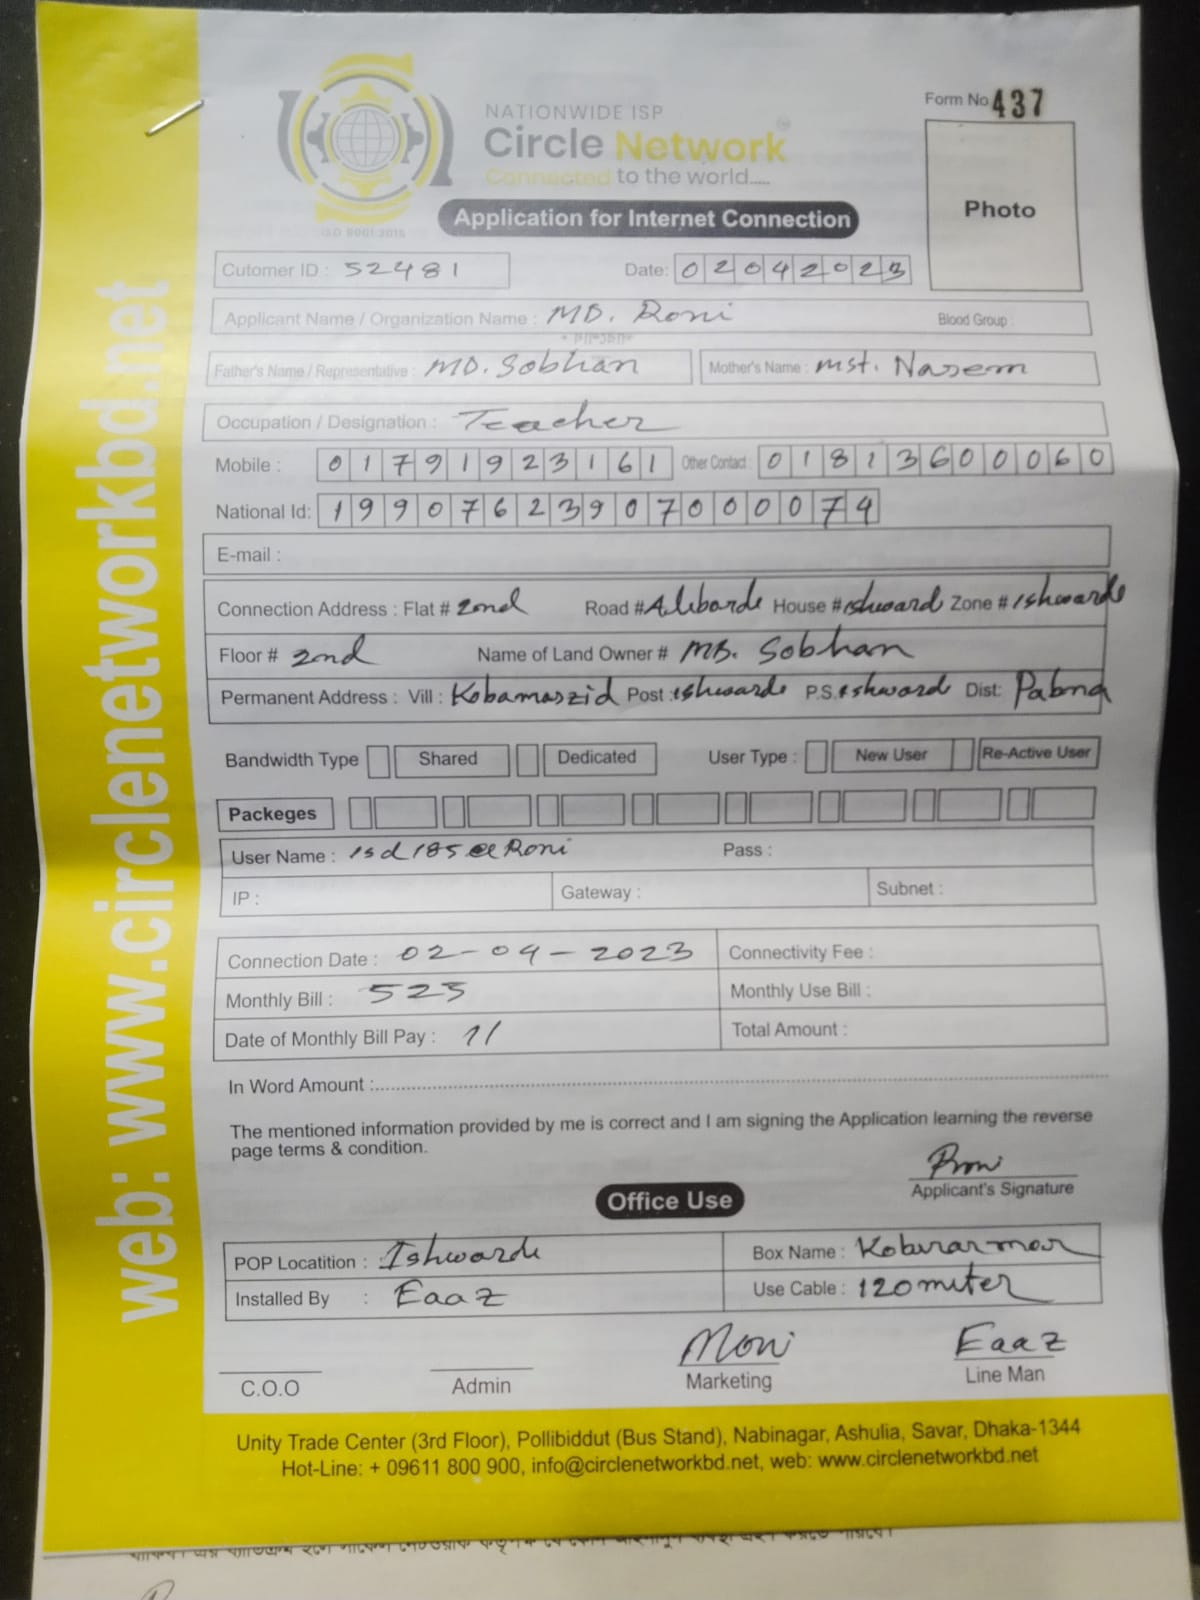 Form No 437
NATIONWIDE ISP
Circle Network
Connected to the world.....
Photo
ISO 9001:2015
Application for Internet Connection
Cutomer ID : 52481 Date: 02042023
Applicant Name / Organization Name : MD. Roni Blood Group :
Father's Name / Representative : MD. Sobhan Mother's Name : Mst. Nasem
Occupation / Designation : Teacher
Mobile : 01791923161 Other Contact : 01813600060
National Id: 19907623907000074
E-mail :
Connection Address : Flat # 2nd Road # Alibarde House # ishward Zone # ishwarde
Floor # 2nd Name of Land Owner # MD. Sobhan
Permanent Address : Vill : Kobamaszid Post : ishwarde P.S. ishward Dist: Pabna
Bandwidth Type Shared Dedicated User Type : New User Re-Active User
Packeges
User Name : isd185@Roni Pass :
IP : Gateway : Subnet :
Connection Date : 02-04-2023 Connectivity Fee :
Monthly Bill : 525 Monthly Use Bill :
Date of Monthly Bill Pay : Total Amount :
In Word Amount :
The mentioned information provided by me is correct and I am signing the Application learning the reverse
page terms & condition.
Roni
Applicant's Signature
Office Use
POP Locatition : Ishwardi Box Name :
Installed By : Eaaz Use Cable : 120 miter
Moni Eaaz
C.O.O Admin Marketing Line Man
Unity Trade Center (3rd Floor), Pollibiddut (Bus Stand), Nabinagar, Ashulia, Savar, Dhaka-1344
Hot-Line: + 09611 800 900, info@circlenetworkbd.net, web: www.circlenetworkbd.net
web: www.circlenetworkbd.net